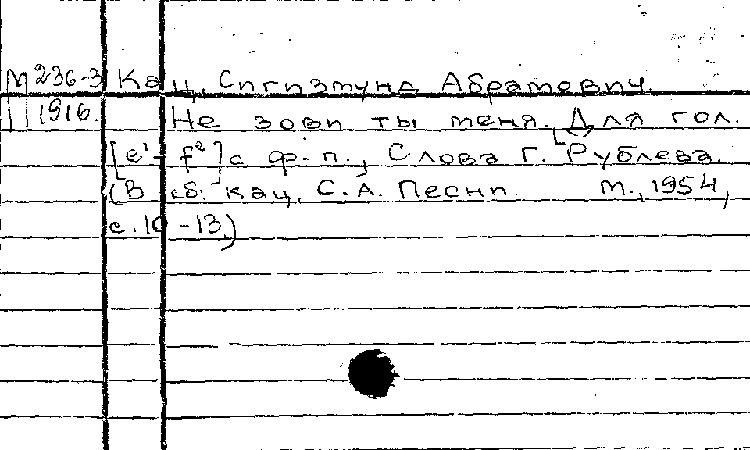 М 236-3 Кац, Сигизмунд Абрамович.
1916. Не зови ты меня. Для гол.
[e¹ - f²] с ф-п., Слова Г. Рублева.
(В сб. Кац, С.А. Песни М., 1954,
с. 10 - 13.)